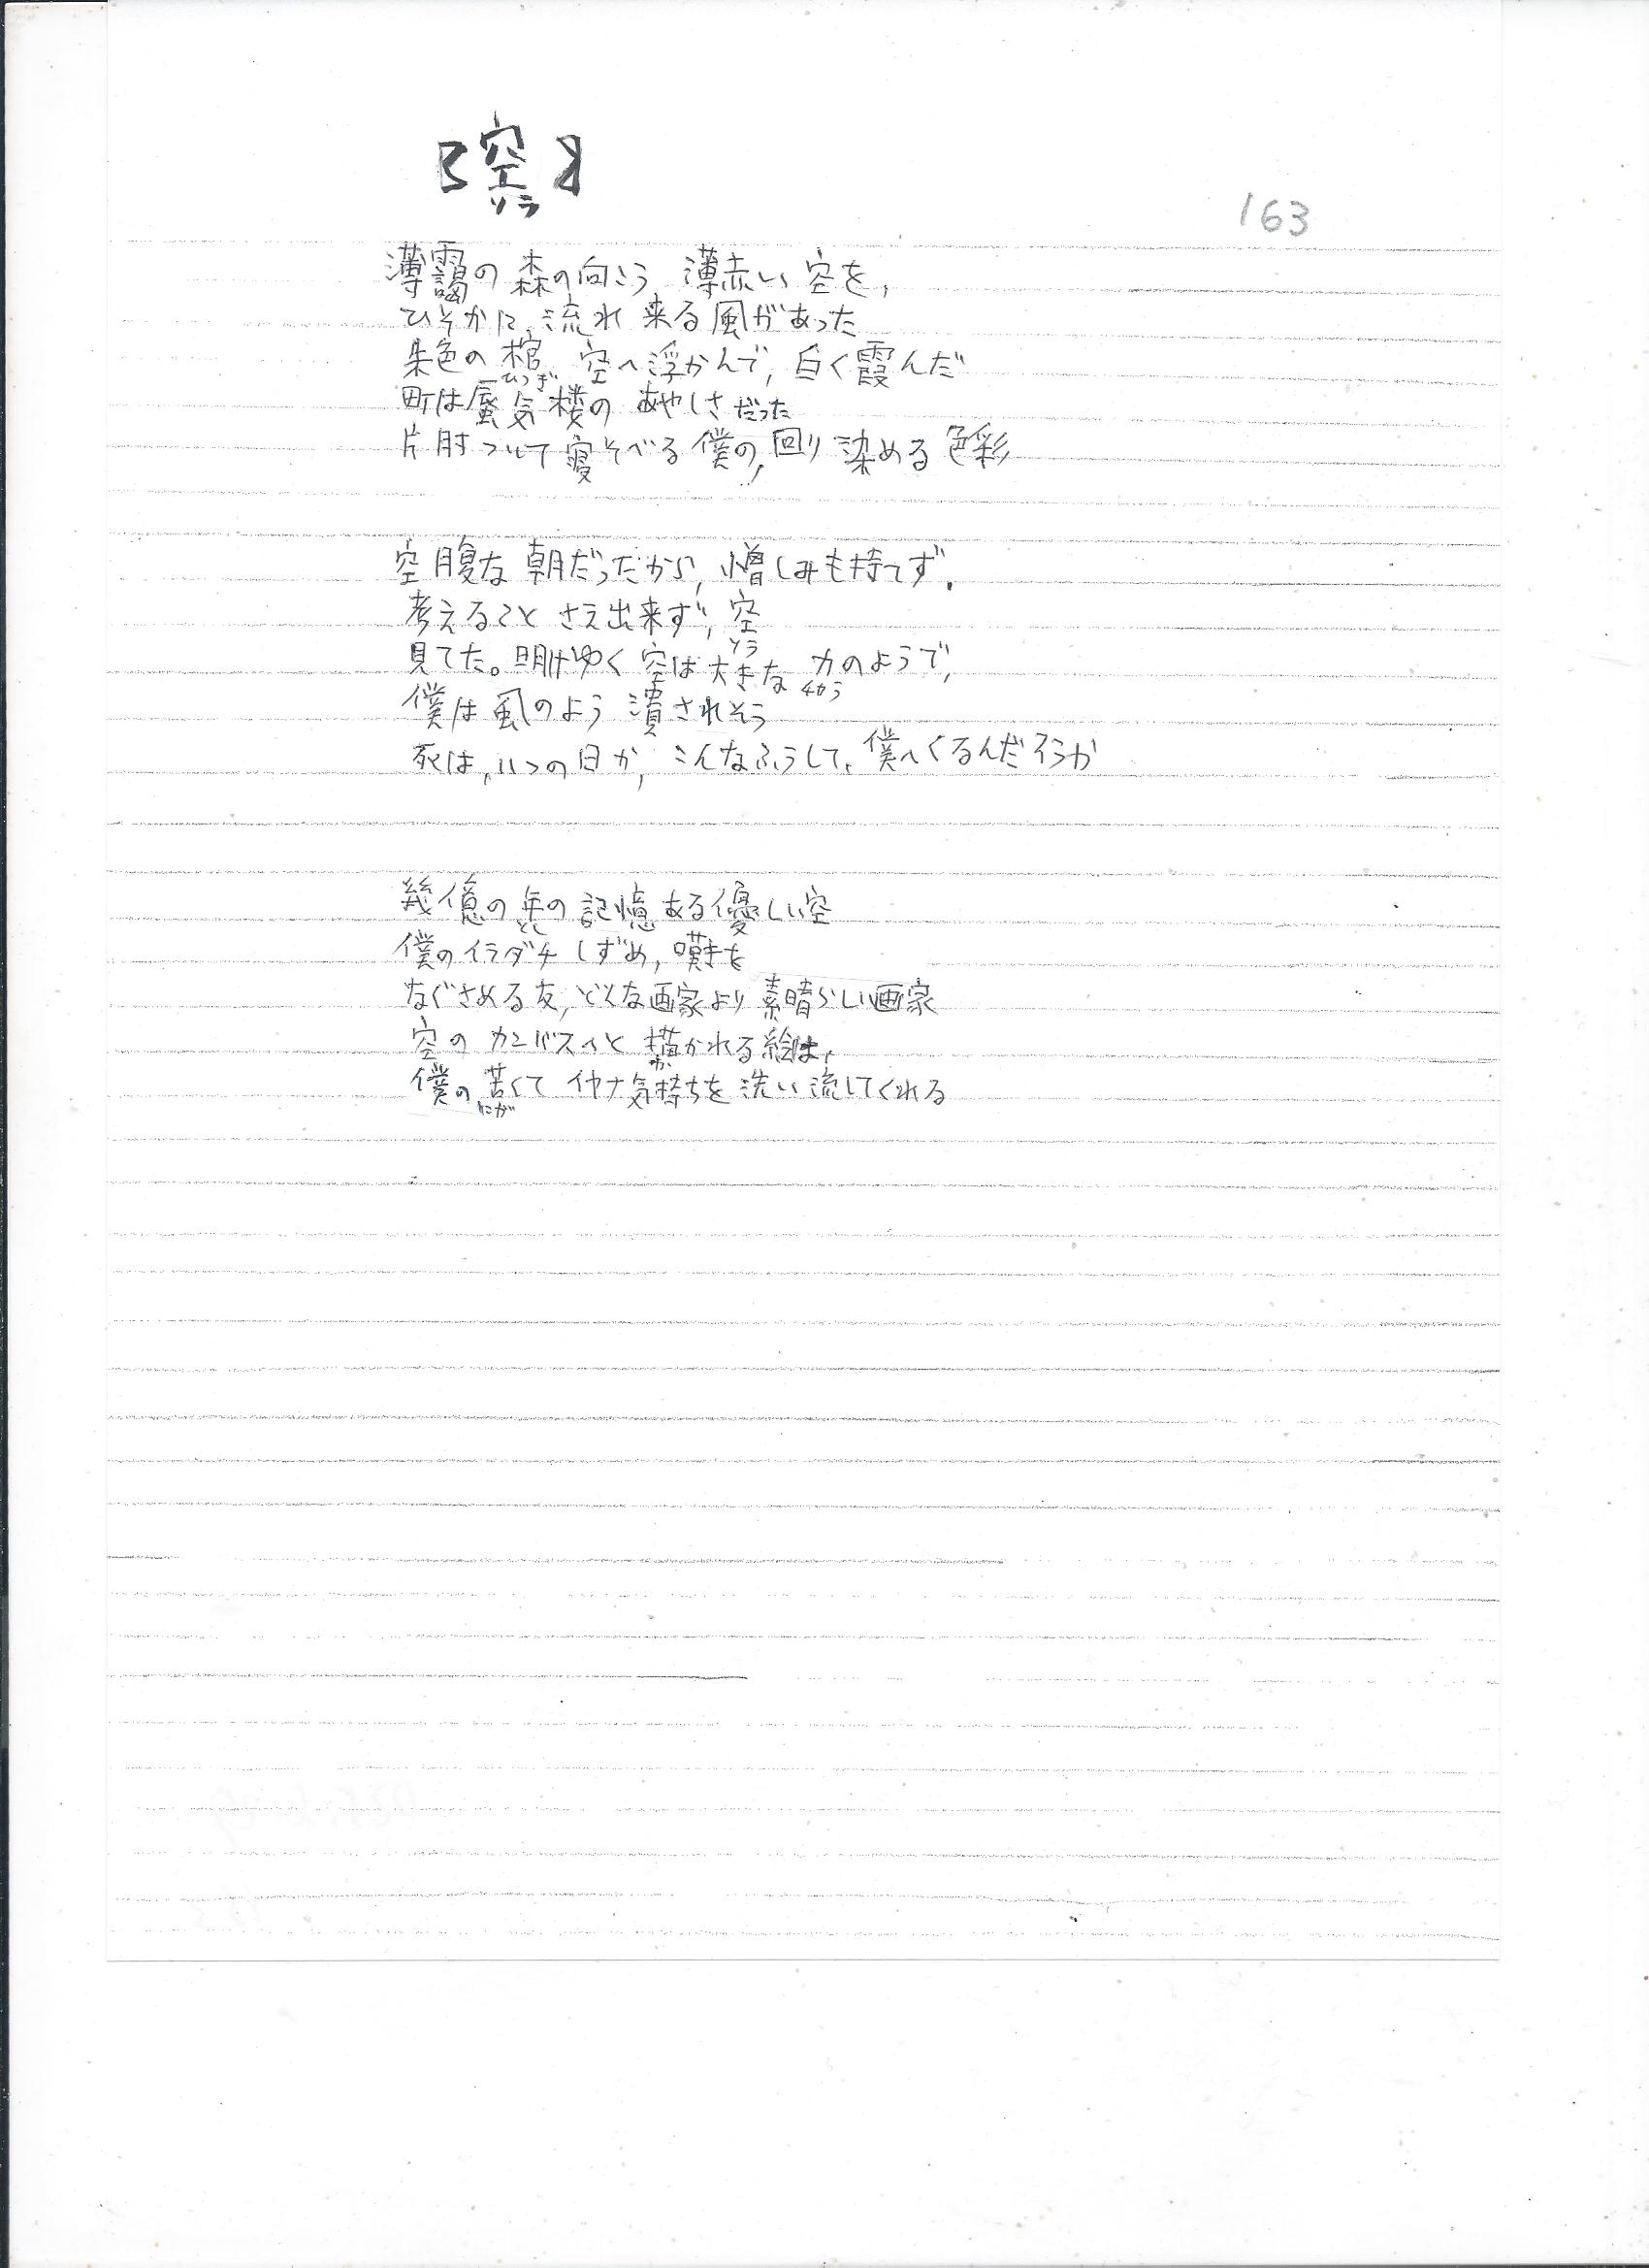 【空】
ソラ
163
薄靄の森の向こう 薄赤い空を,
ひそかに,流れ来る風があった
朱色の棺 空へ浮かんで,白く霞んだ
ひつぎ
町は蜃気楼のあやしさだった
片肘ついて寝そべる僕の,回り染める色彩
空腹な朝だっだから,憎しみも持てず,
考えることさえ出来ず,空
そら
見てた。明けゆく空は大きな力のようで,
ちから
僕は風のよう潰されそう
死は,いつの日か,こんなふうして,僕へくるんだろうか
幾億の年の記憶ある優しい空
とし
僕のイラダチしずめ,嘆きを
なぐさめる友,どんな画家より素晴らしい画家
空のカンバスへと描かれる絵は,
か
僕の苦くてイヤナ気持ちを洗い流してくれる
にが